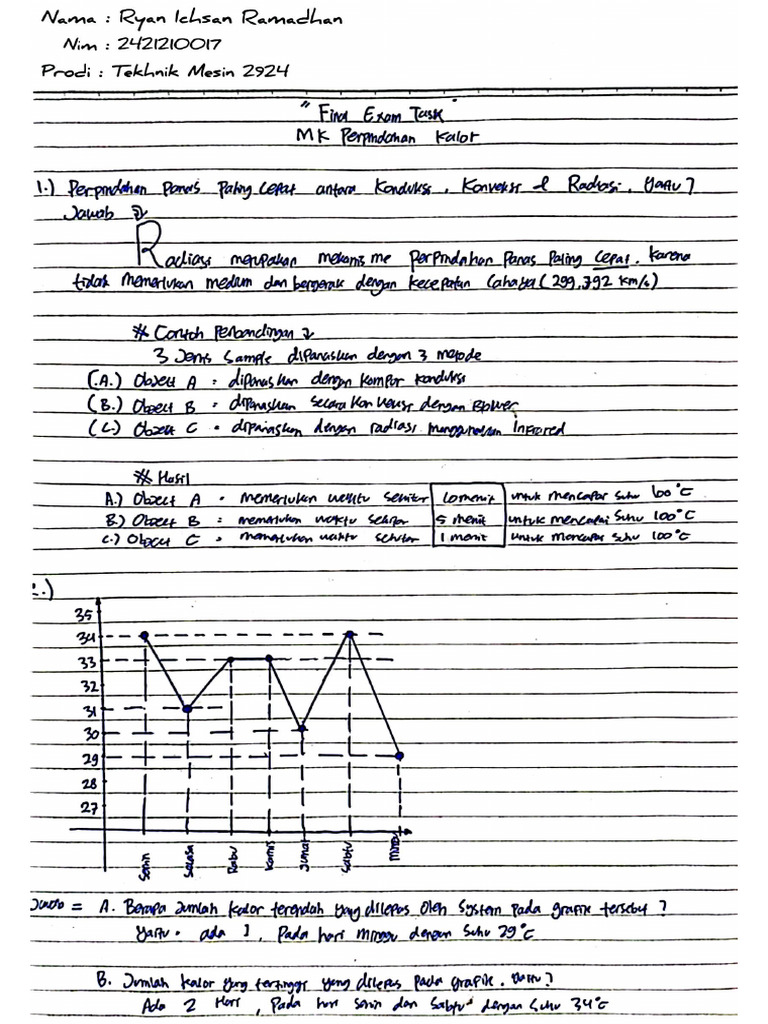 Nama : Ryan Ichsan Ramadhan
Nim : 2421210017
Prodi : Tekhnik Mesin 2924
"Final Exam Task"
MK Perpindahan Kalor
1.) Perpindahan Panas Paling Cepat antara Konduksi, Konveksi & Radiasi, Yaitu ?
Jawab
Radiasi merupakan mekanisme perpindahan Panas Paling Cepat, karena
tidak memerlukan medium dan bergerak dengan kecepatan Cahaya (299,792 km/s)
* Contoh Perbandingan
3 Jenis Sample dipanaskan dengan 3 metode
(A.) Object A : dipanaskan dengan kompor konduksi
(B.) Object B : dipanaskan secara konveksi dengan Blower
(C.) Object C : dipanaskan dengan radiasi menggunakan Infrared
* Hasil
A.) Object A : memerlukan waktu sekitar 10 menit untuk mencapai suhu 100°C
B.) Object B : memerlukan waktu sekitar 5 menit untuk mencapai suhu 100°C
C.) Object C : memerlukan waktu sekitar 1 menit untuk mencapai suhu 100°C
2.)
35
34
33
32
31
30
29
28
27
Senin Selasa Rabu Kamis Jumat Sabtu Minggu
Jawab = A. Berapa Jumlah kalor terendah yang dilepas oleh System pada grafik tersebut ?
Yaitu : ada 1, Pada hari Minggu dengan Suhu 29°C
B. Jumlah kalor yang tertinggi yang dilepas pada grafik, Yaitu ?
Ada 2 Hari, Pada hari Senin dan Sabtu dengan Suhu 34°C